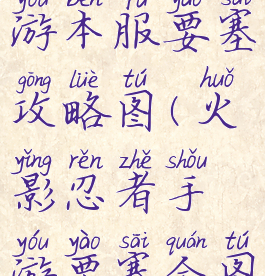 yóu běn fú yào sāi
游本服要塞
gōng lüè tú huǒ
攻略图(火
yǐng rěn zhě shǒu
影忍者手
yóu yào sāi quán tú
游要塞全图